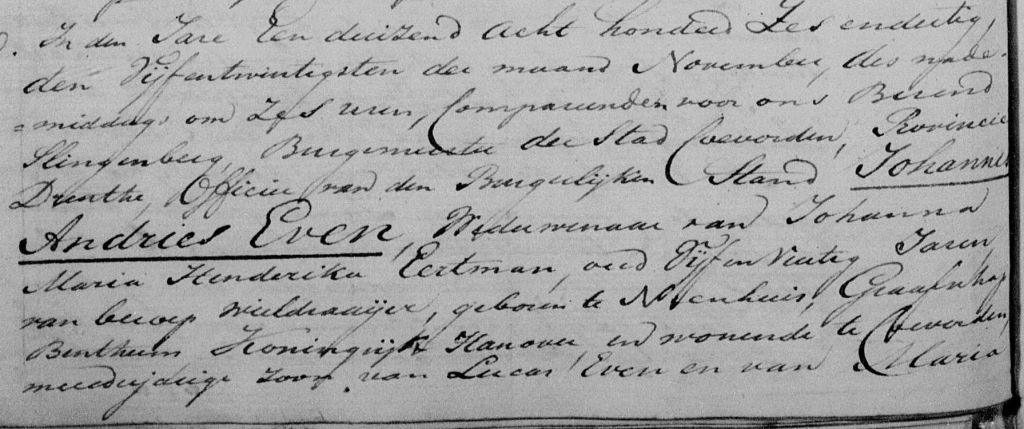 In den Jare Een duizend acht honderd Zes endertig,
den Vijfentwintigsten der maand November, des nade-
=middags om Zes uren, Compareerden voor ons Berend
Slingenberg, Burgemeester der Stad Coevorden, Provincie
Drenthe, Officier van den Burgerlijken Stand Johannes
Andries Even, Weduwenaar van Johanna
Maria Henderika Eertman, oud Vijf en Veertig Jaren
van beroep wieldraaijer, geboren te Nienhuis, Graafschap
Bentheim Koningrijk Hanover en wonende te Coevorden,
meerderjarige zoon van Lucas Even en van Maria